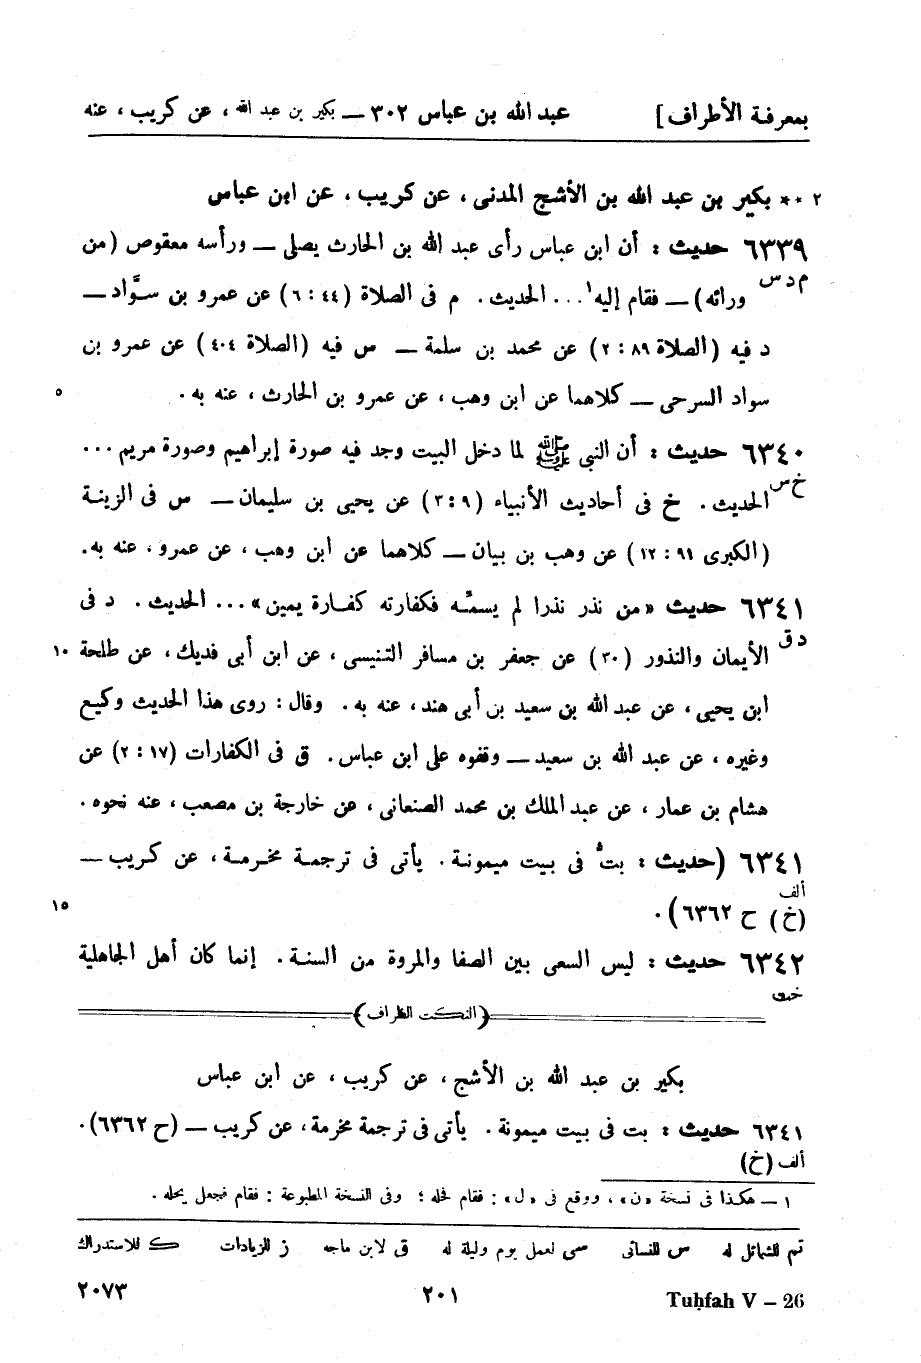 بمعرفة الأطراف] عبد الله بن عباس ٣٠٢ — بكير بن عبد الله ، عن كريب ، عنه
٢ ** بكير بن عبد الله بن الأشج المدنى ، عن كريب ، عن ابن عباس
٦٣٣٩ حديث : أن ابن عباس رأى عبد الله بن الحارث يصلى — ورأسه معقوص (من
م د س ورائه) — فقام إليه١ ... الحديث . م فى الصلاة (٤٤ : ٦) عن عمرو بن سوَّاد —
د فيه (الصلاة ٨٩ : ٢) عن محمد بن سلمة — س فيه (الصلاة ٤٠٤) عن عمرو بن
سواد السرحى — كلاهما عن ابن وهب ، عن عمرو بن الحارث ، عنه به . ٥
٦٣٤٠ حديث : أن النبى ﷺ لما دخل البيت وجد فيه صورة إبراهيم وصورة مريم ...
خ س الحديث . خ فى أحاديث الأنبياء (٩ : ٣) عن يحيى بن سليمان — س فى الزينة
(الكبرى ٩١ : ١٢) عن وهب بن بيان — كلاهما عن ابن وهب ، عن عمرو ، عنه به .
٦٣٤١ حديث «من نذر نذرا لم يسمِّه فكفارته كفارة يمين» ... الحديث . د فى
د ق الأيمان والنذور (٣٠) عن جعفر بن مسافر التنيسى ، عن ابن أبى فديك ، عن طلحة ١٠
ابن يحيى ، عن عبد الله بن سعيد بن أبى هند ، عنه به . وقال : روى هذا الحديث وكيع
وغيره ، عن عبد الله بن سعيد — وقفوه على ابن عباس . ق فى الكفارات (١٧ : ٢) عن
هشام بن عمار ، عن عبد الملك بن محمد الصنعانى ، عن خارجة بن مصعب ، عنه نحوه .
٦٣٤١ (حديث : بتُّ فى بيت ميمونة . يأتى فى ترجمة مخرمة ، عن كريب —
ألف
(خ) ح ٦٣٦٢) . ١٥
٦٣٤٢ حديث : ليس السعى بين الصفا والمروة من السنة . إنما كان أهل الجاهلية
خت
(النكت الظراف)
بكير بن عبد الله بن الأشج ، عن كريب ، عن ابن عباس
٦٣٤١ حديث : بت فى بيت ميمونة . يأتى فى ترجمة مخرمة ، عن كريب — (ح ٦٣٦٢) .
ألف (خ)
١ — هكذا فى نسخة «ن» ، ووقع فى «ل» : فقام فحله ؛ وفى النسخة المطبوعة : فقام فجعل يحله .
تم للشمائل له س للنسائى سى لعمل يوم وليلة له ق لابن ماجه ز للزيادات ك للاستدراك
Tuḥfah V – 26 ٢٠١ ٢٠٧٣